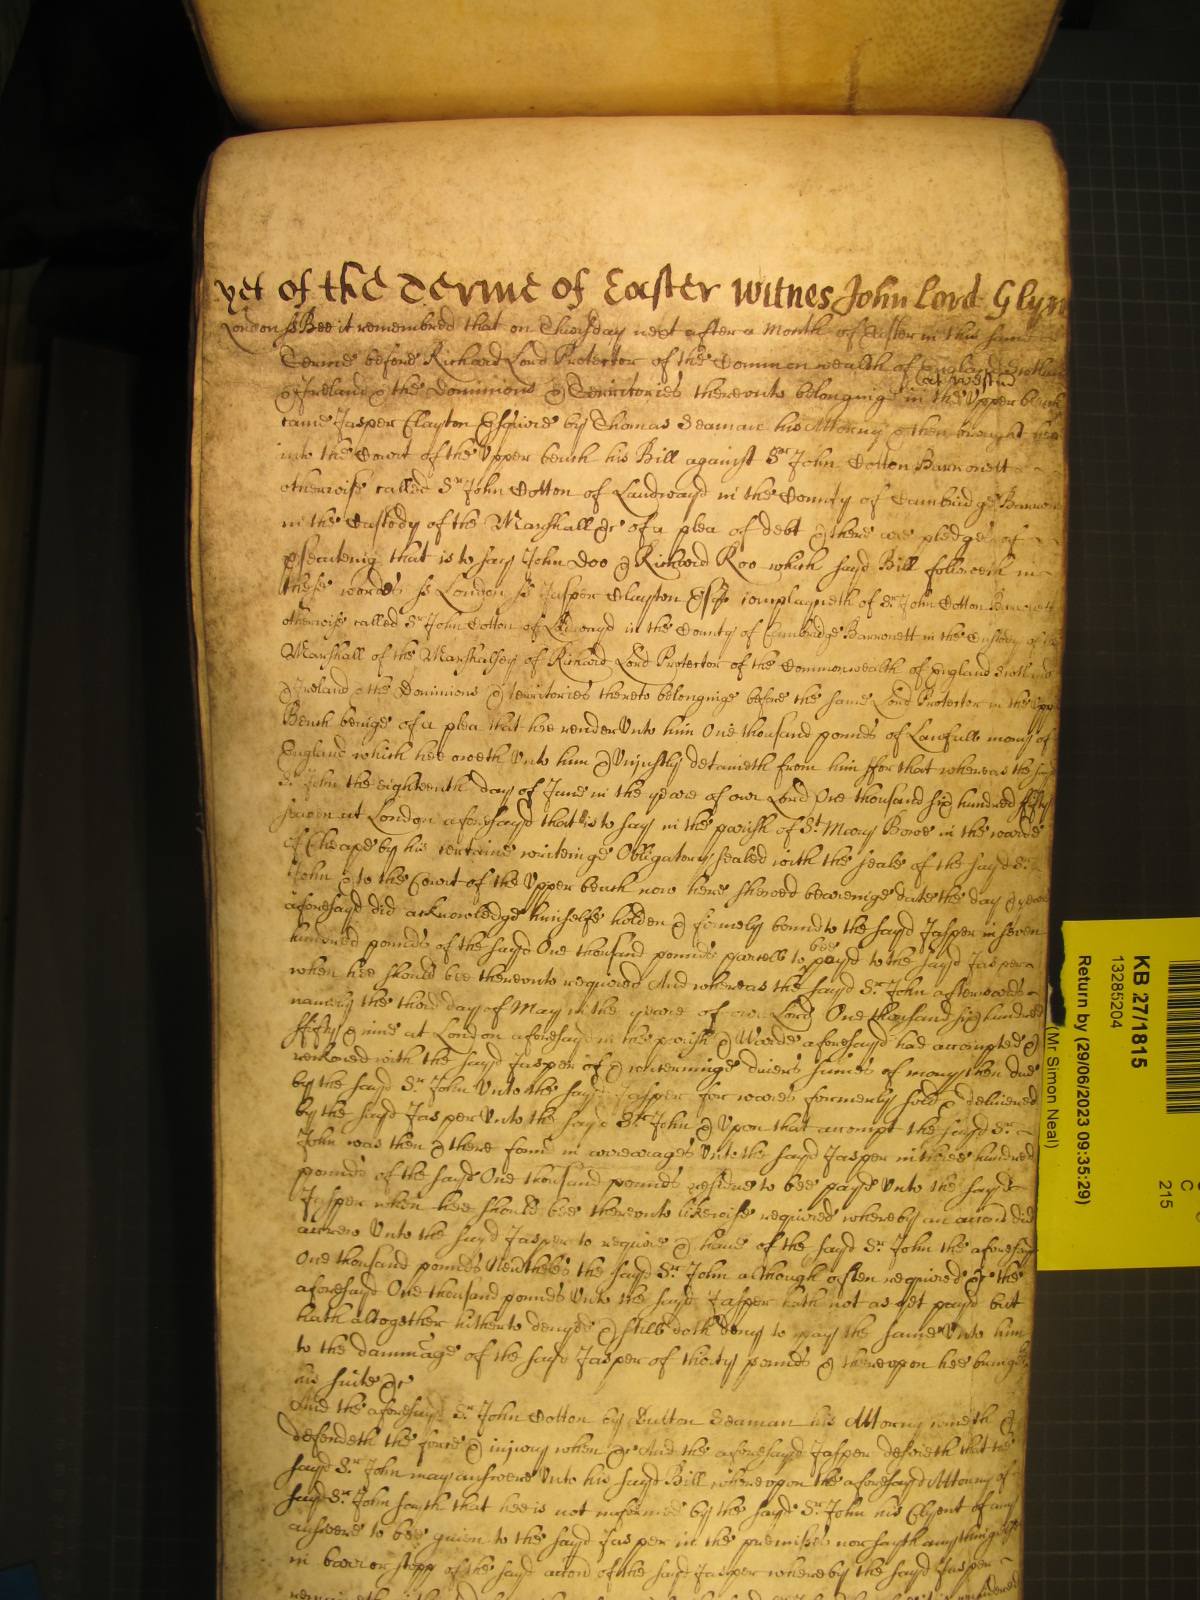 yet of the Terme of Easter Witnes John Lord Glyn
London ss Bee it remembred that on Thursday next after a Month of Easter in this same
Terme before Richard Lord Protector of the Common wealth of England Scotland
& Ireland & the Dominions & Territories thereunto belonginge in the Upper bench
att Westmr
came Jasper Clayton Esquire by Thomas Seaman his Attorny & then brought here
into the Court of the Upper bench his Bill against Sr John Cotton Barronett
otherwise called Sr John Cotton of Landwayd in the County of Cambridge Barronett
in the Custody of the Marshall &c of a plea of debt & there are pledges of
psecutinig that is to say John Doo & Richard Roo which sayd Bill followeth in
these wordes ss London ss Jasper Clayton Esqr complayneth of Sr John Cotton Barronett
otherwise called Sr John Cotton of Landwayd in the County of Cambridge Barronett in the Custody of the
Marshall of the Marshalsey of Richard Lord Protector of the Commonwealth of England Scotland
& Ireland & the Dominions & territories thereto belonginge before the same Lord Protector in the Upper
Bench beinge of a plea that hee render Unto him One thousand pounds of Lawfull mony of
England which hee oweth Unto him & Unjustly detaineth from him ffor that whereas the sayd
Sr John the eighteenth day of June in the yeare of our Lord One thousand six hundred fifty
seaven at London aforesayd that is to say in the parish of St Mary Bowe in the warde
of Cheape by his certaine writeinge Obligatory sealed with the seale of the sayd Sr
John & to the Court of the Upper bench now here shewed beareinge date the day & yeare
aforesayd did acknowledge himselfe holden & firmely bound to the sayd Jasper in seven
hundred pounds of the sayd One thousand pounds parcell to bee payd to the sayd Jasper
when hee should bee thereunto required And whereas the sayd Sr John afterwards
namely the third day of May in the yeare of our Lord One thousand six hundred
ffifty & nine at London aforesayd in the parish & Warde aforesayd had accompted &
reckoned with the sayd Jasper of & concerninge divers sumes of mony then due
by the sayd Sr John Unto the sayd Jasper for wares formerly sold & delivered
by the sayd Jasper Unto the sayd Sr John & Upon that accompt the sayd Sr
John was then & there found in arrearages Unto the sayd Jasper in three hundred
pounds of the sayd One thousand pounds residue to bee payd Unto the sayd
Jasper when hee should bee thereunto likewise required whereby an accion did
accrew Unto the sayd Jasper to require & have of the sayd Sr John the aforesayd
One thousand pounds Nevtheles the sayd Sr John although often required &c the
aforesayd One thousand pounds Unto the sayd Jasper hath not as yet payd but
hath altogether hitherto denyed & still doth deny to pay the same Unto him
to the dammage of the sayd Jasper of thirty pounds & thereupon hee bringeth
his suite &c
And the aforesayd Sr John Cotton by Dutton Seaman his Attorny cometh &
defendeth the force & injury when &c And the aforesayd Jasper desireth that the
sayd Sr John may answere Unto his sayd Bill whereupon the aforesayd Attorny of
sayd Sr John sayth that hee is not informed by the sayd Sr John his Clyent of any
answere to bee given to the sayd Jasper in the premisses nor sayth any thinge
in barr or stopp of the sayd accion of the sayd Jasper whereby the sayd Jasper
KB 27/1815
13285204
Return by (29/06/2023 09:35:29)
(Mr Simon Neal)
C
215